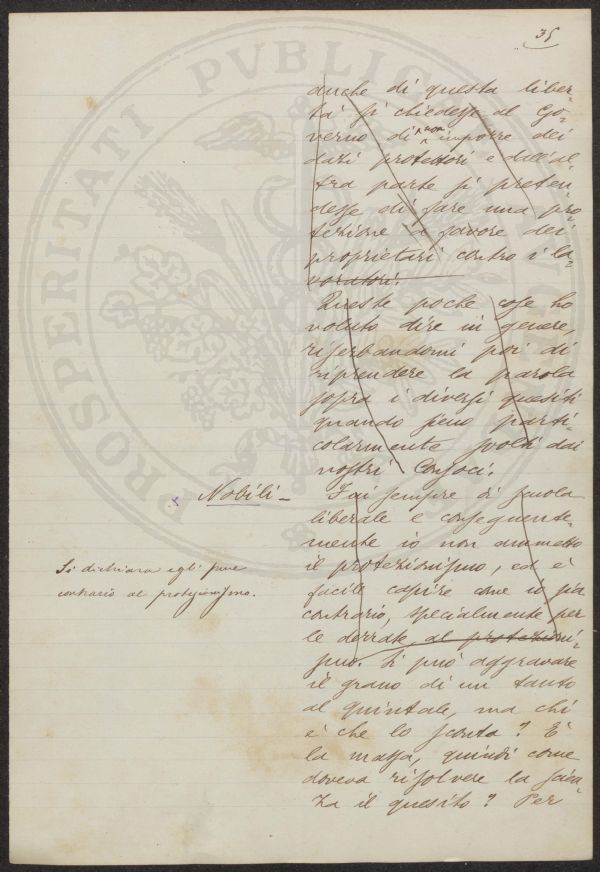 35
anche di questa liber=
tà si chiedesse al Go=
verno di non imporre dei
dazi protettori e dall'al=
tra parte si preten=
desse di fare una pro
tezione a favore dei
proprietari contro i la=
voratori.
Queste poche cose ho
voluto dire in genere,
riserbandomi poi di
riprendere la parola
sopra i diversi quesiti
quando sieno parti
colarmente svolti dai
nostri Consoci.
Nobili - Fui sempre di scuola
liberale e conseguente=
mente io non ammetto
il protezionismo, ed è
facile capire come io sia
contrario, specialmente per
le derrate, al protezioni=
smo. Si può aggravare
il grano di un tanto
al quintale, ma chi
è che lo sconta? È
la massa, quindi come
doveva risolvere la scien=
za il quesito? Per
Si dichiara egli pure
contrario al protezionismo.
PROSPERITATI PVBLICAE